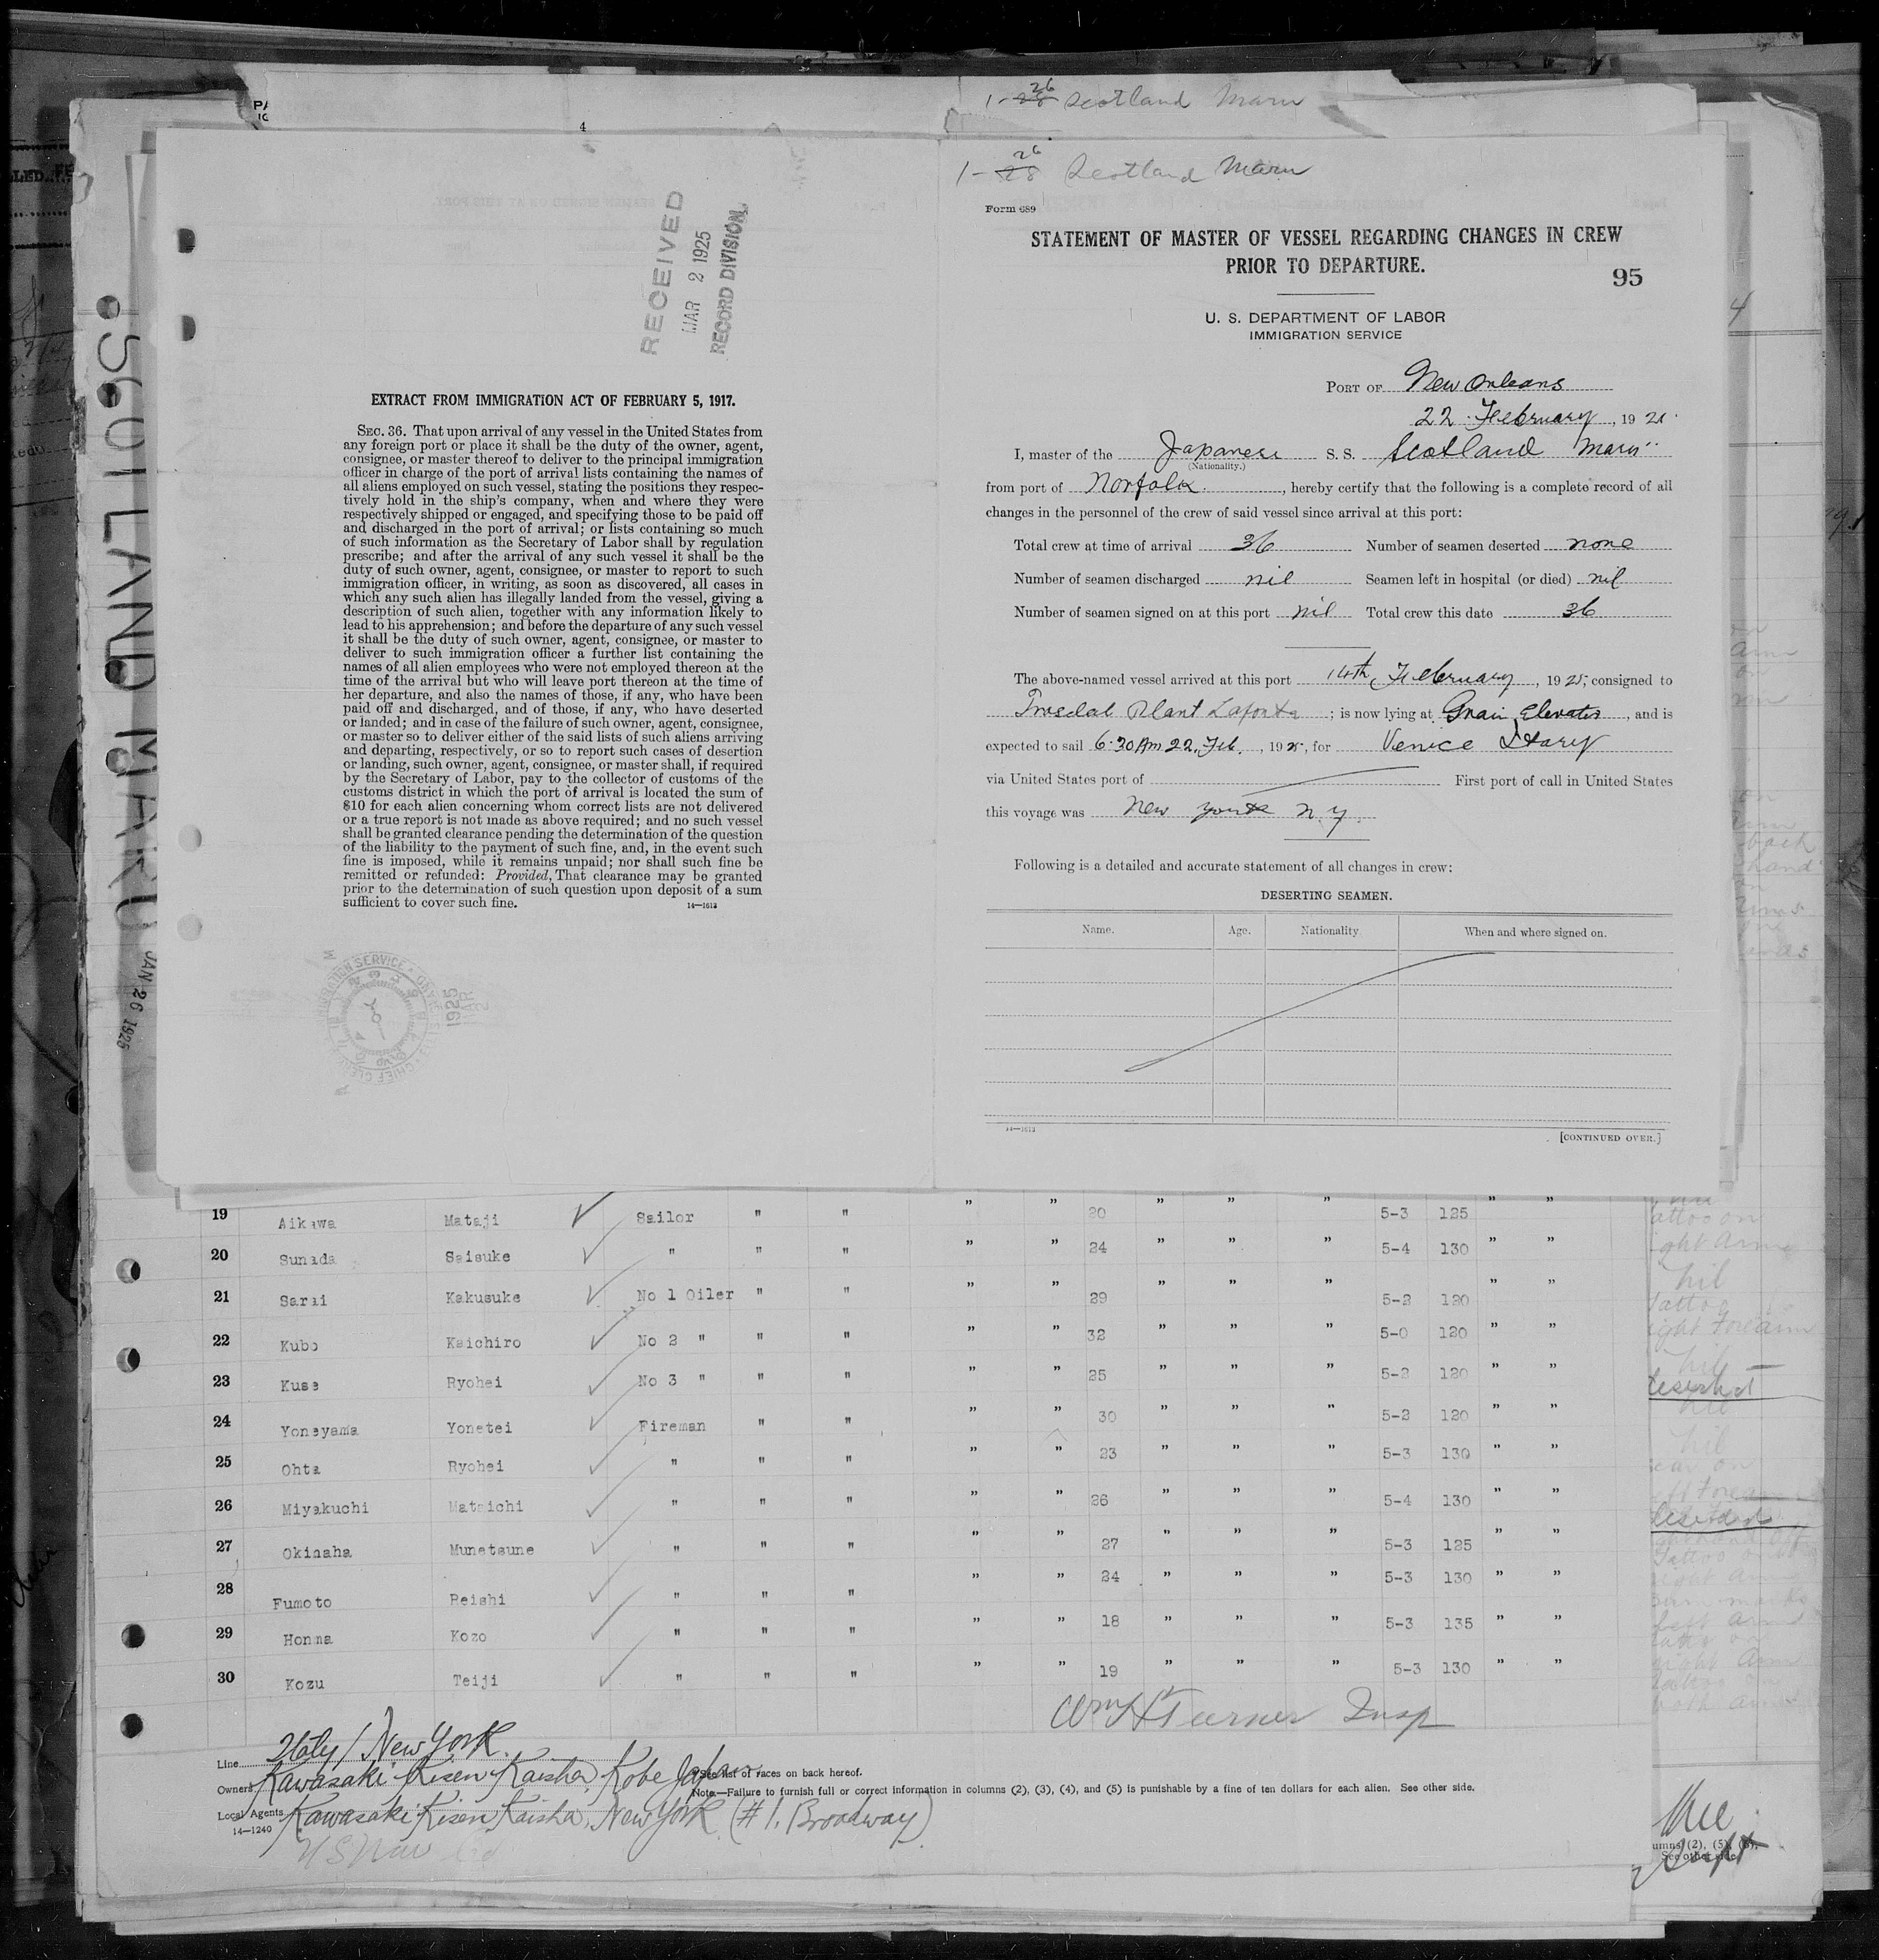 1-28 26 Scotland Maru
4
1-28 26 Scotland Maru
RECEIVED
MAR 2 1925
RECORD DIVISION.
Form 689
STATEMENT OF MASTER OF VESSEL REGARDING CHANGES IN CREW
PRIOR TO DEPARTURE.
95
U. S. DEPARTMENT OF LABOR
IMMIGRATION SERVICE
PORT OF New Orleans
22 February, 19
I, master of the Japanese S. S. Scotland Maru
(Nationality.)
from port of Norfolk, hereby certify that the following is a complete record of all
changes in the personnel of the crew of said vessel since arrival at this port:
Total crew at time of arrival 36 Number of seamen deserted none
Number of seamen discharged nil Seamen left in hospital (or died) nil
Number of seamen signed on at this port nil Total crew this date 36
The above-named vessel arrived at this port 14th, February, 1925, consigned to
Plant; is now lying at Grain Elevator, and is
expected to sail 6.30 Am 22, Feb., 1925, for Venice
via United States port of First port of call in United States
this voyage was New York N.Y.
Following is a detailed and accurate statement of all changes in crew:
DESERTING SEAMEN.
Name. Age. Nationality When and where signed on.
14—1613
[CONTINUED OVER.]
EXTRACT FROM IMMIGRATION ACT OF FEBRUARY 5, 1917.
SEC. 36. That upon arrival of any vessel in the United States from
any foreign port or place it shall be the duty of the owner, agent,
consignee, or master thereof to deliver to the principal immigration
officer in charge of the port of arrival lists containing the names of
all aliens employed on such vessel, stating the positions they respec-
tively hold in the ship's company, when and where they were
respectively shipped or engaged, and specifying those to be paid off
and discharged in the port of arrival; or lists containing so much
of such information as the Secretary of Labor shall by regulation
prescribe; and after the arrival of any such vessel it shall be the
duty of such owner, agent, consignee, or master to report to such
immigration officer, in writing, as soon as discovered, all cases in
which any such alien has illegally landed from the vessel, giving a
description of such alien, together with any information likely to
lead to his apprehension; and before the departure of any such vessel
it shall be the duty of such owner, agent, consignee, or master to
deliver to such immigration officer a further list containing the
names of all alien employees who were not employed thereon at the
time of the arrival but who will leave port thereon at the time of
her departure, and also the names of those, if any, who have been
paid off and discharged, and of those, if any, who have deserted
or landed; and in case of the failure of such owner, agent, consignee,
or master so to deliver either of the said lists of such aliens arriving
and departing, respectively, or so to report such cases of desertion
or landing, such owner, agent, consignee, or master shall, if required
by the Secretary of Labor, pay to the collector of customs of the
customs district in which the port of arrival is located the sum of
$10 for each alien concerning whom correct lists are not delivered
or a true report is not made as above required; and no such vessel
shall be granted clearance pending the determination of the question
of the liability to the payment of such fine, and, in the event such
fine is imposed, while it remains unpaid; nor shall such fine be
remitted or refunded: Provided, That clearance may be granted
prior to the determination of such question upon deposit of a sum
sufficient to cover such fine.
14—1613
SCOTLAND MARU JAN 26 1925
19 Aikawa Mataji Sailor " " " " 20 " " " 5-3 125 " "
20 Sunada Saisuke " " " " " 24 " " " 5-4 130 " "
21 Sarai Kakusuke No 1 Oiler " " " " 29 " " " 5-2 120 " "
22 Kubo Kaichiro No 2 " " " " " 32 " " " 5-0 120 " "
23 Kuse Ryohei No 3 " " " " " 25 " " " 5-2 120 " "
24 Yoneyama Yonetei Fireman " " " " 30 " " " 5-2 120 " "
25 Ohta Ryohei " " " " " 23 " " " 5-3 130 " "
26 Miyakuchi Mataichi " " " " " 26 " " " 5-4 130 " "
27 Okinaha Munetsune " " " " " 27 " " " 5-3 125 " "
28 Fumoto Reishi " " " " " 24 " " " 5-3 130 " "
29 Honma Kozo " " " " " 18 " " " 5-3 135 " "
30 Kozu Teiji " " " " " 19 " " " 5-3 130 " "
Wm H Turner Insp
Line Italy / New York
Owners Kawasaki Kisen Kaisha, Kobe Japan
*See list of races on back hereof.
Note.—Failure to furnish full or correct information in columns (2), (3), (4), and (5) is punishable by a fine of ten dollars for each alien. See other side.
Local Agents Kawasaki Kisen Kaisha, New York (#1, Broadway)
14—1240